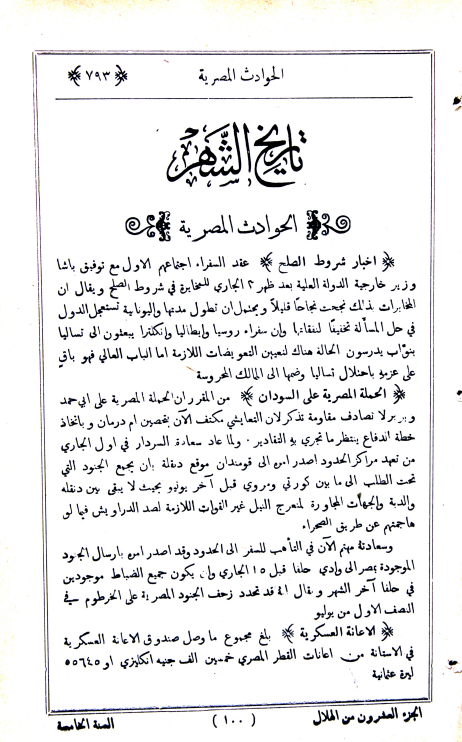 الحوادث المصرية
﴿٧٩٣﴾
تاريخ الشهر
الحوادث المصرية
﴿ اخبار شروط الصلح ﴾ عقد السفراء اجتماعهم الاول مع توفيق باشا
وزير خارجية الدولة العلية بعد ظهر ٢ الجاري للمخابرة في شروط الصلح ويقال ان
المخابرات بذلك نجحت نجاحًا قليلاً ويحتمل ان تطول مدتها واليونانية تستعجل الدول
في حل المسألة تخفيفًا لنفقاتها وإن سفراء روسيا وإيطاليا وإنكلترا يبعثون الى تساليا
بنوّاب يدرسون الحالة هناك لتعيين التعويضات اللازمة اما الباب العالي فهو باقٍ
على عزمهِ باحتلال تساليا وضمها الى الممالك المحروسة
﴿ الحملة المصرية على السودان ﴾ من المقرر ان الحملة المصرية على ابي حمد
وبربر لا تصادف مقاومة تذكر لان التعايشي مكتفٍ الآن بتحصين ام درمان وباتخاذ
خطة الدفاع ينتظر ما تجري بهِ التقادير . ولما عاد سعادة السردار في اول الجاري
من تعهد مراكز الحدود اصدر امره الى قومندان موقع دنقلة بان يجمع الجنود التي
تحت الطلب الى ما بين كورتي ومروي قبل آخر يونيو بحيث لا يبقى بين دنقله
والدبة والجهات المجاورة لمنعرج النيل غير القوات اللازمة لصد الدراويش فيما لو
هاجمتهم عن طريق الصحراء
وسعادتهُ مهتم الآن في التأهب للسفر الى الحدود وقد اصدر امره بارسال الجنود
الموجودة بمصر الى وادي حلفا قبل ١٥ الجاري وان يكون جميع الضباط موجودين
في حلفا آخر الشهر ويقال انهُ قد تحدد زحف الجنود المصرية على الخرطوم في
النصف الاول من يوليو
﴿ الاعانة العسكرية ﴾ بلغ مجموع ما وصل صندوق الاعانة العسكرية
في الاستانة من اعانات القطر المصري خمسين الف جنيه انكليزي او ٥٥٦٤٥
ليرة عثمانية
الجزء العشرون من الهلال
(١٠٠)
السنة الخامسة